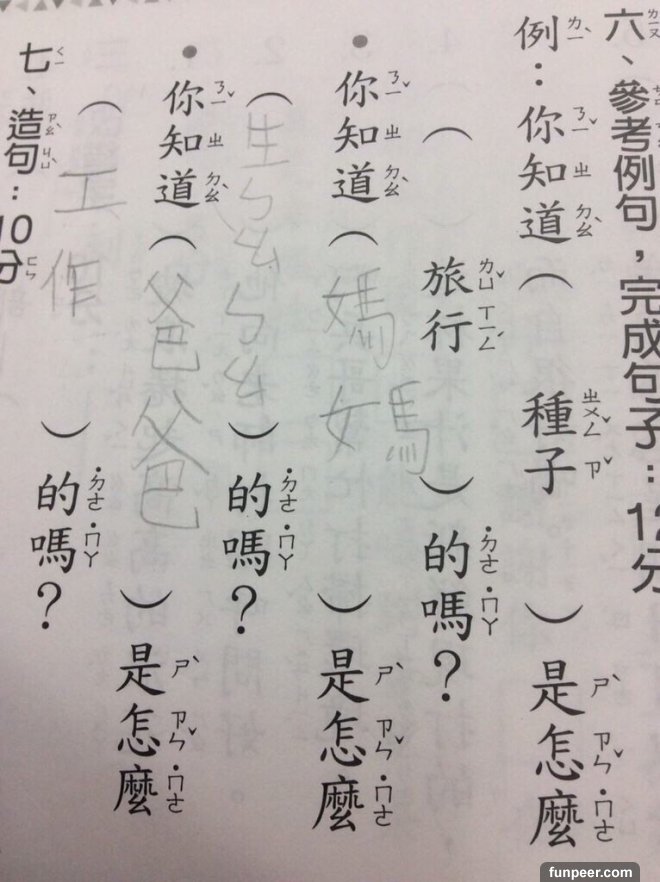 六、參考例句，完成句子：12分
例：你知道（種子）是怎麼
（旅行）的嗎？
●你知道（媽媽）是怎麼
（生ㄅㄠㄅㄠ）的嗎？
●你知道（爸爸）是怎麼
（工作）的嗎？
七、造句：10分
funpeer.com